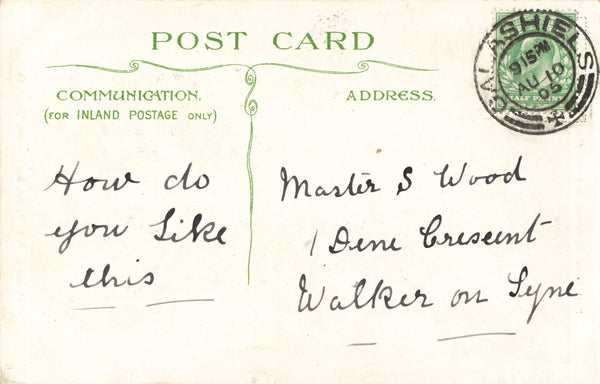 POST CARD
COMMUNICATION.
(FOR INLAND POSTAGE ONLY)
ADDRESS.
GALASHIELS
9 15 PM
AU 10
05
HALF PENNY
How do
you like
this
Master S Wood
1 Dene Crescent
Walker on Tyne